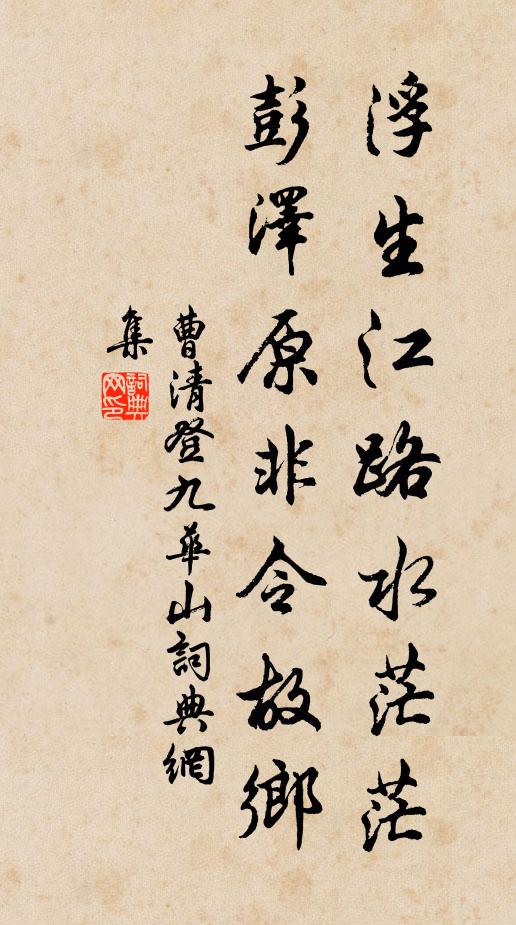 浮生江路水茫茫
彭澤原非令故鄉
曹清登九華山詞典網
集
詞典
网印